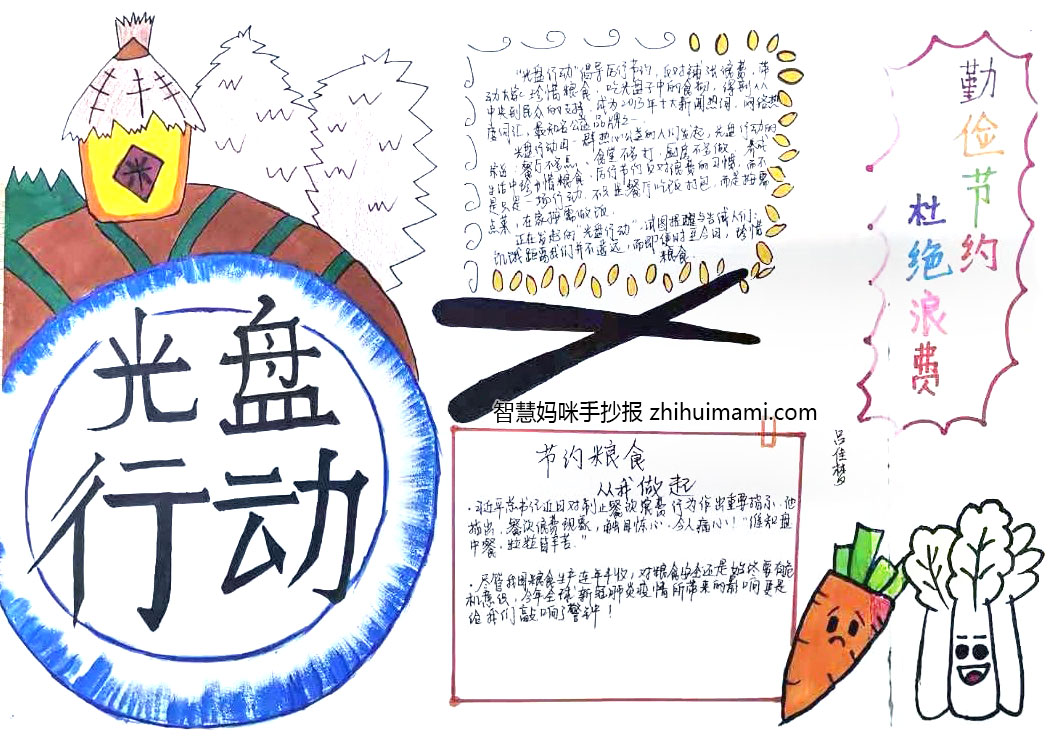 光盘
行动
米
"光盘行动"倡导厉行节约,反对铺张浪费,带
动大家珍惜粮食,吃光盘子中的食物,得到从
中央到民众的支持,成为2013年十大新闻热词、网络热
度词汇,最知名公益品牌之一。
光盘行动由一群热心公益的人们发起,光盘行动的
宗旨:餐厅不多点、食堂不多打、厨房不多做。养成
生活中珍惜粮食、厉行节约反对浪费的习惯,而不
是只是一场行动。不只是在餐厅吃饭打包,而是按需
点菜,在家按需做饭。
正在发起的"光盘行动",试图提醒与告诫人们:
饥饿距离我们并不遥远,而即便时至今日,珍惜
粮食
勤俭节约
杜绝浪费
智慧妈咪手抄报 zhihuimami.com
节约粮食
从我做起
·习近平总书记近日对制止餐饮浪费行为作出重要指示。他
指出,餐饮浪费现象,触目惊心、令人痛心!"谁知盘
中餐,粒粒皆辛苦。"
·尽管我国粮食生产连年丰收,对粮食安全还是始终要有危
机意识,今年全球新冠肺炎疫情所带来的影响更是
给我们敲响了警钟!
吕佳梦